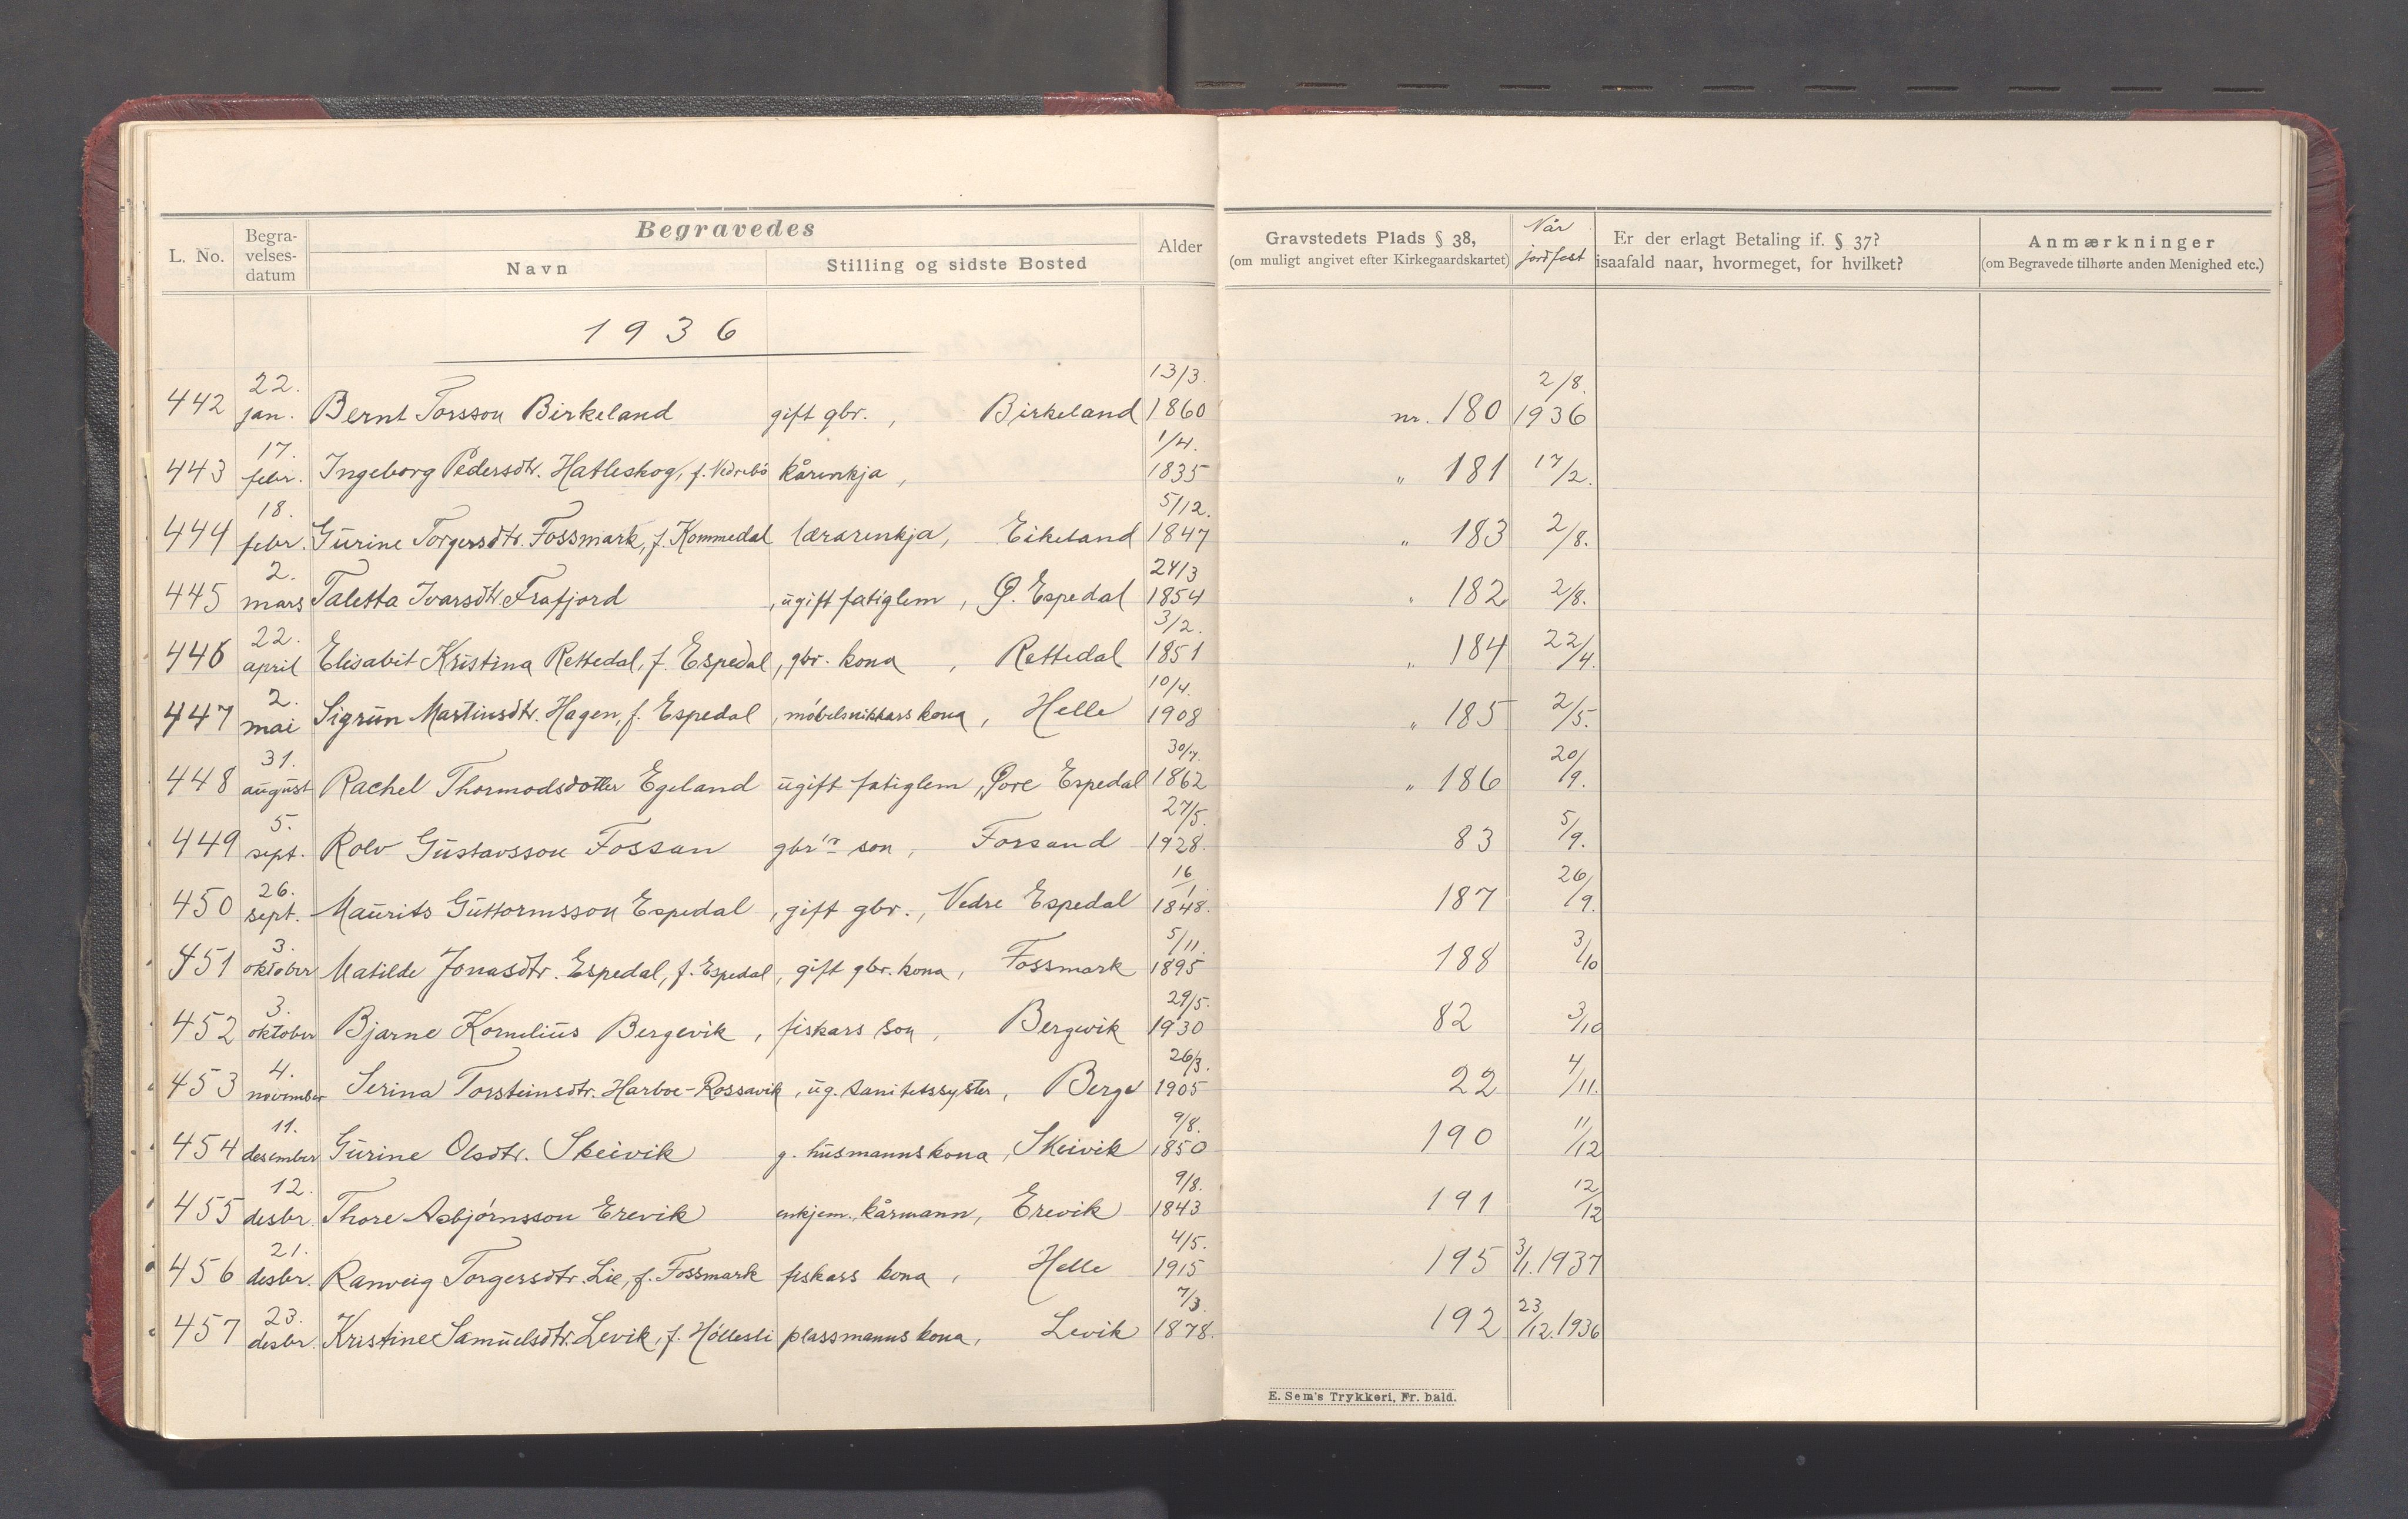 Begravedes
L. No. Begravelsesdatum Navn Stilling og sidste Bosted Alder Gravstedets Plads § 38, (om muligt angivet efter Kirkegaardskartet) Når jordfest Er der erlagt Betaling if. § 37? isaafald naar, hvormeget, for hvilket? Anmærkninger (om Begravede tilhørte anden Menighed etc.)
1936
442 22. jan. Bernt Torsson Birkeland gift gbr., Birkeland 13/3. 1860 nr. 180 2/8. 1936
443 17. febr. Ingeborg Pedersdtr. Hatleskog, f. Vedrebø kårenkja, 1/4. 1835 " 181 17/2.
444 18. febr. Gurine Torgersdtr. Fossmark, f. Kommedal lærarenkja, Eikeland 5/12. 1847 " 183 2/8.
445 2. mars Taletta Ivarsdtr. Frafjord, ugift fatiglem, Ø. Espedal 24/3 1854 " 182 2/8.
446 22. april Elisabit Kristina Rettedal, f. Espedal, gbr. kona, Rettedal 3/2. 1851 " 184 22/4.
447 2. mai Sigrun Martinsdtr. Hagen, f. Espedal, möbelsnikkars kona, Helle 10/4. 1908 " 185 2/5.
448 31. august Rachel Thormodsdotter Egeland ugift fatiglem, Øvre Espedal 1862 " 186 20/9.
449 5. sept. Rolv Gustavsson Fossan gbr's son, Forsand 27/5. 1928. 83 5/9.
450 26. sept. Maurits Guttormsson Espedal, gift gbr., Nedre Espedal 16/1. 1848. 187 26/9.
451 3. oktober Matilde Jonasdtr. Espedal, f. Espedal, gift gbr. kona, Fossmark 5/11. 1895 188 3/10
452 3. oktober Bjarne Kornelius Bergevik, fiskars son, Bergevik 29/5. 1930 82 3/10
453 4. november Serina Torsteinsdtr. Harboe-Rossavik, ug. sanitetssyster, Berge 26/3. 1905 22 4/11.
454 11. desember Gurine Olsdtr. Skeivik g. husmannskona, Skeivik 9/8. 1850 190 11/12
455 12. desbr. Thore Asbjørnsson Erevik enkjem., kårmann, Erevik 9/8. 1843 191 12/12
456 21. desbr. Ranveig Torgersdtr. Lie, f. Fossmark fiskars kona, Helle 4/5. 1915 195 3/1. 1937
457 23. desbr. Kristine Samuelsdtr. Levik, f. Höllesli plassmanns kona, Levik 7/3. 1878. 192 23/12. 1936
E. Sem's Trykkeri, Fr. hald.